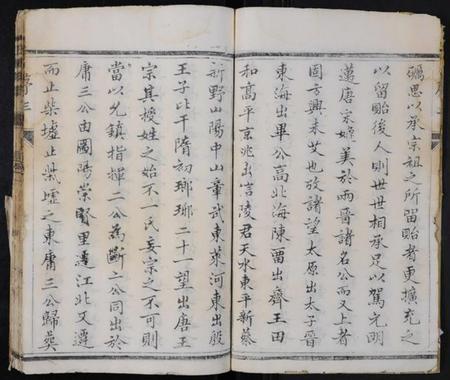 礪思以承宗祖之所留貽者更擴充之
以留貽後人則世世相承足以駕元明
邁唐宋媲美於兩晉諸名公而又上者
固方興未艾也攷諸望太原出太子晉
東海出畢公高北海陳留出齊王田
和高平京兆出信陵君天水東平新蔡
新野山陽中山章武東萊河東出殷
王子比干隋初瑯琊二十一望出唐王
宗其授姓之始不一氏妄宗之不可則
當以允鎮指揮二公為斷二公同出於
庸三公由國陽崇賢里遷江北又遷
而止柴墟止柴墟之東庸三公歸葬